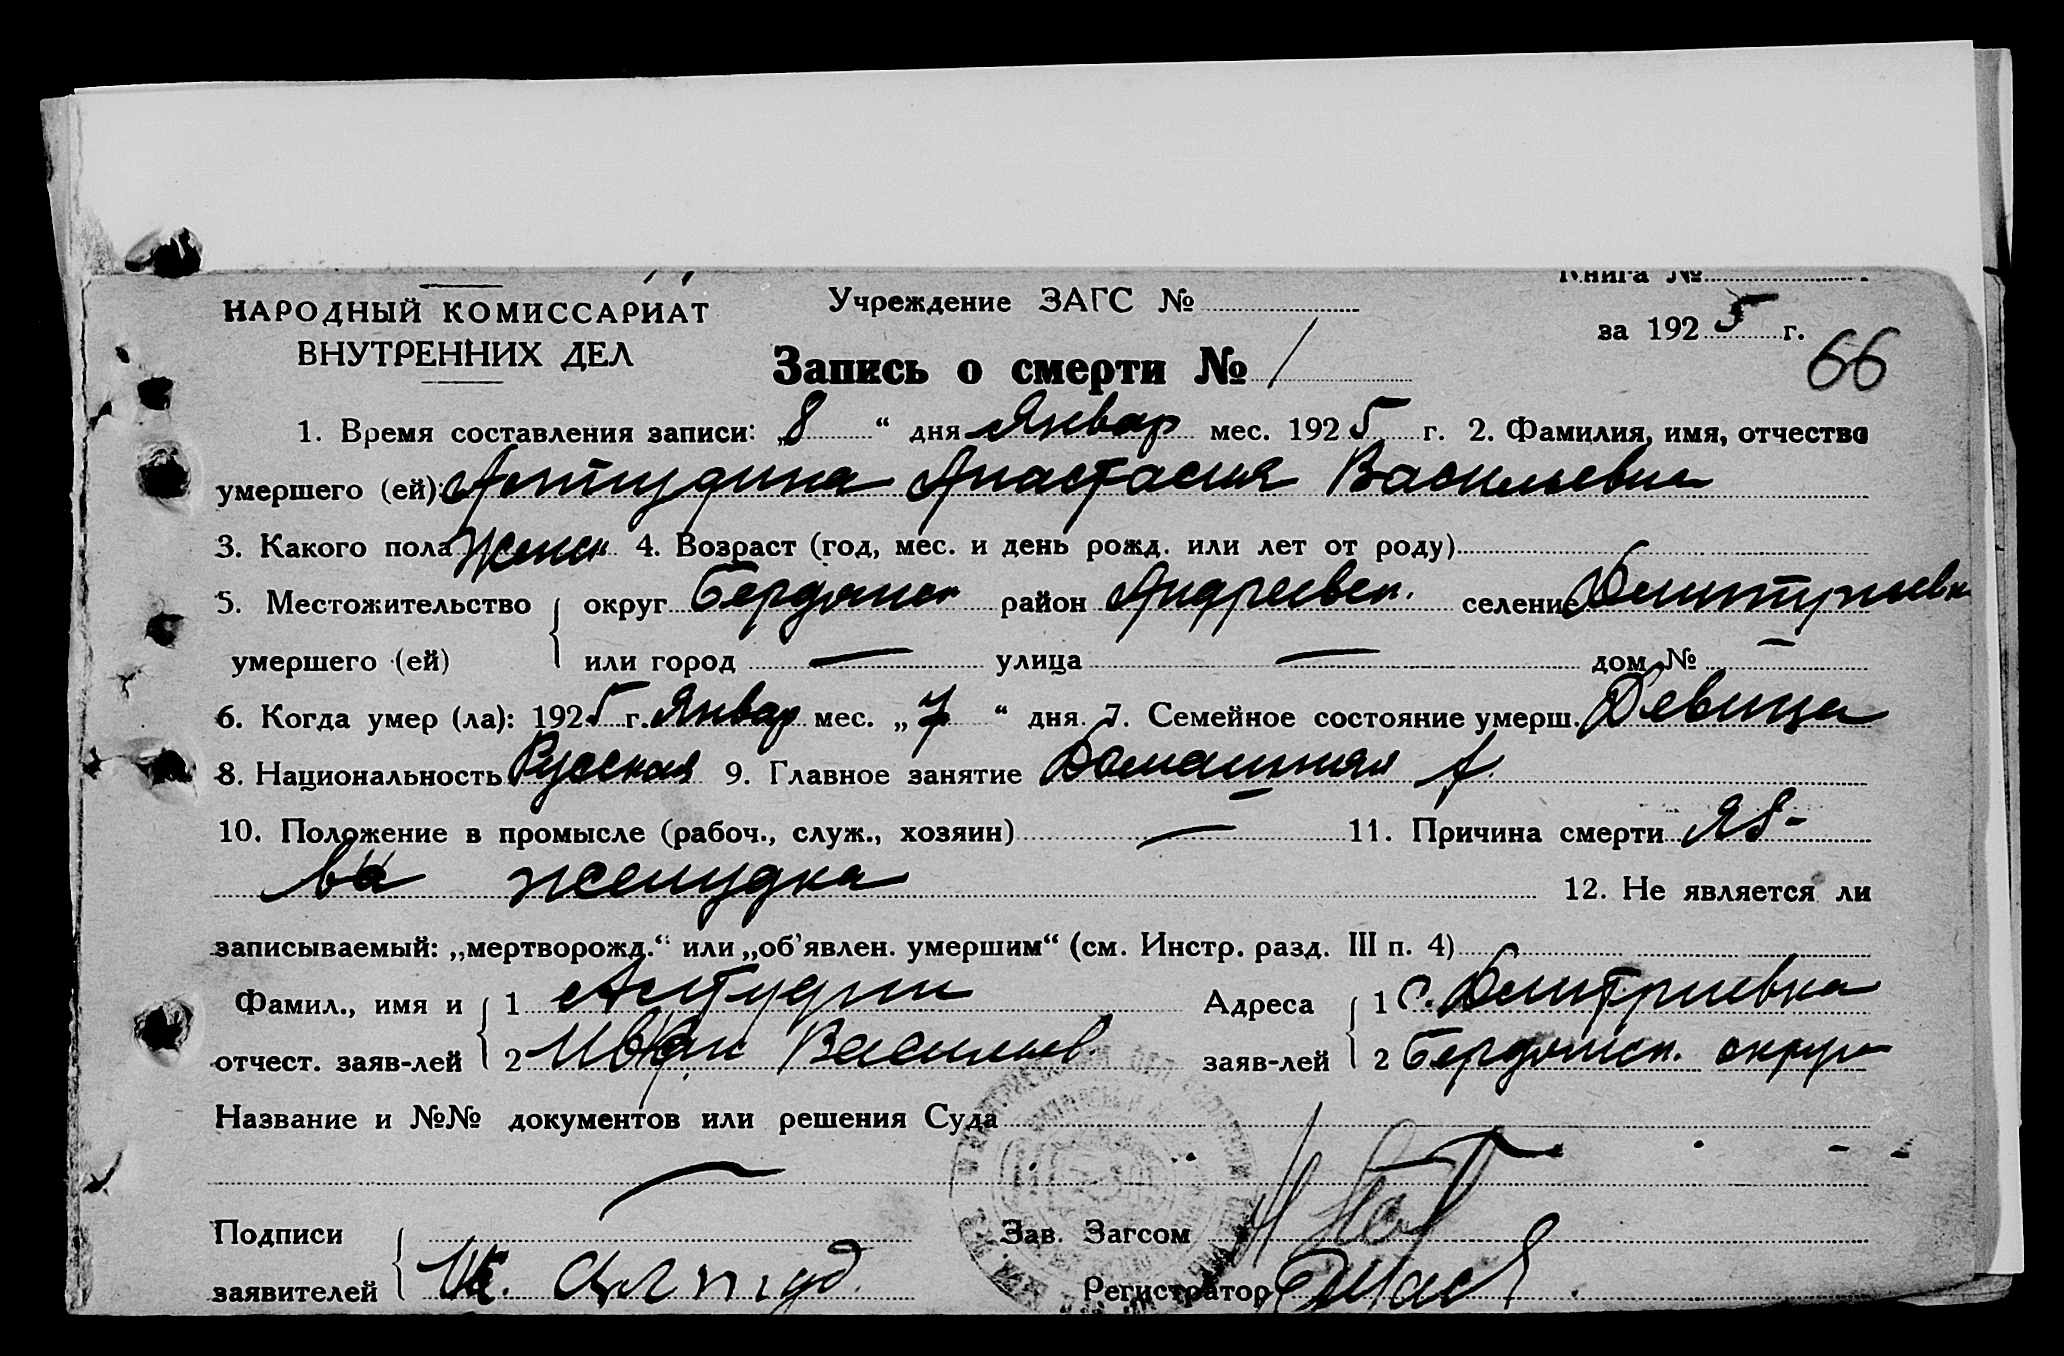 Книга №
НАРОДНЫЙ КОМИССАРИАТ ВНУТРЕННИХ ДЕЛ
Учреждение ЗАГС №
за 1925 г.
66
Запись о смерти № 1
1. Время составления записи: „8“ дня Январ мес. 1925 г. 2. Фамилия, имя, отчество
умершего (ей): Алтудина Анастасия Васильевна
3. Какого пола Женск 4. Возраст (год, мес. и день рожд. или лет от роду)
5. Местожительство округ Бердянск район Андреевск. селение Дмитриевк
умершего (ей) или город — улица — дом № —
6. Когда умер (ла): 1925 г. Январ мес. „7“ дня. 7. Семейное состояние умерш. Девица
8. Национальность Русская 9. Главное занятие Домашняя
10. Положение в промысле (рабоч., служ., хозяин) — 11. Причина смерти Яз-
ва желудка 12. Не является ли
записываемый: „мертворожд.“ или „об'явлен. умершим“ (см. Инстр. разд. III п. 4)
Фамил., имя и 1 Алтудин Адреса 1 С. Дмитриевка
отчест. заяв-лей 2 Иван Васильев заяв-лей 2 Бердянск. округа
Название и №№ документов или решения Суда
—
Подписи Зав. Загсом
заявителей Ив. Алтуд Регистратор